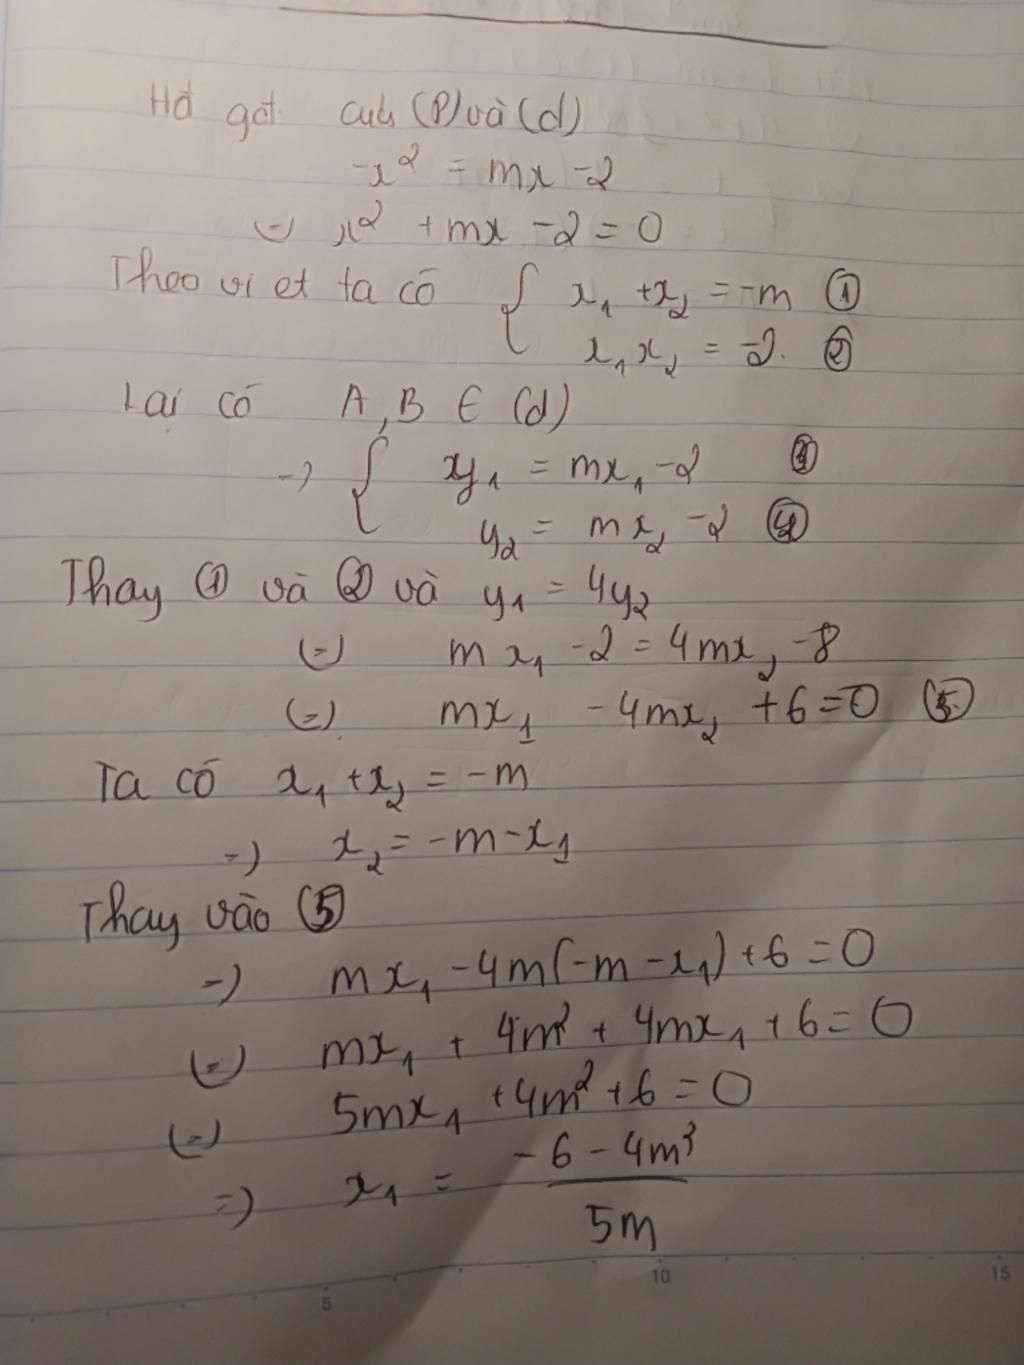 Hđ gđ cuả (P) và (d)
-x² = mx -2
(=) x² + mx - 2 = 0
Theo vi et ta có { x₁ + x₂ = -m ①
x₁ x₂ = -2. ②
Lại có A, B ∈ (d)
=) { y₁ = mx₁ - 2 ③
y₂ = mx₂ - 2 ④
Thay ① và ② và y₁ = 4y₂
(=) mx₁ - 2 = 4mx₂ - 8
(=) mx₁ - 4mx₂ + 6 = 0 ⑤
Ta có x₁ + x₂ = -m
=) x₂ = -m - x₁
Thay vào ⑤
=) mx₁ - 4m(-m - x₁) + 6 = 0
(=) mx₁ + 4m² + 4mx₁ + 6 = 0
(=) 5mx₁ + 4m² + 6 = 0
=) x₁ = (-6 - 4m³)/5m
5 10 15